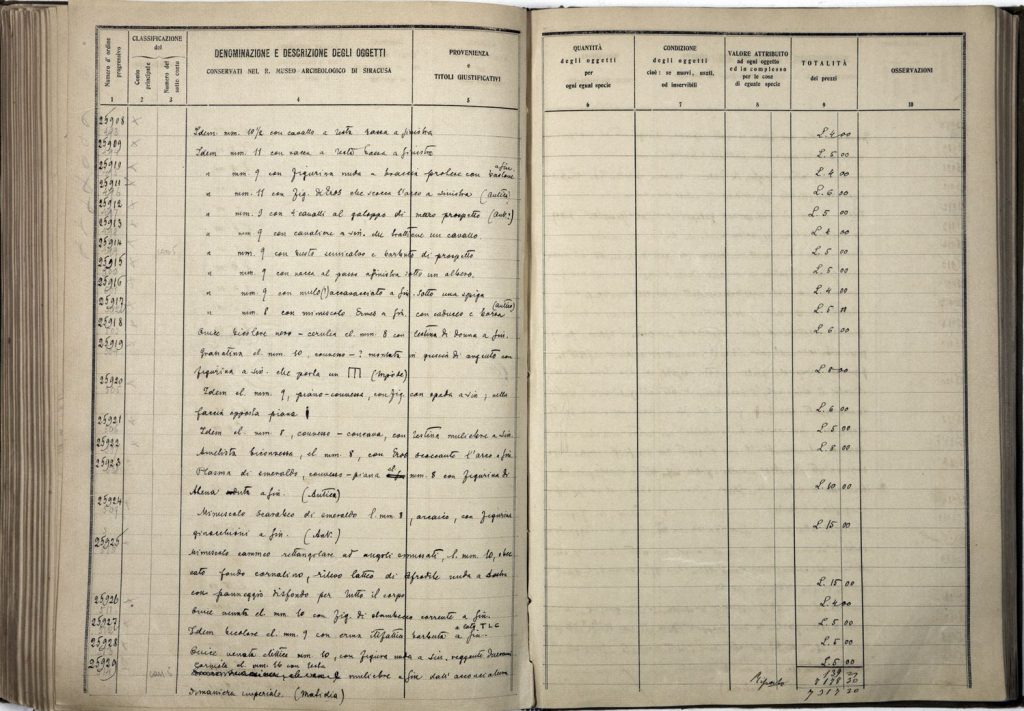 Numero d'ordine progressivo
CLASSIFICAZIONE del
Conto principale
Numero del sotto conto
DENOMINAZIONE E DESCRIZIONE DEGLI OGGETTI
CONSERVATI NEL R. MUSEO ARCHEOLOGICO DI SIRACUSA
PROVENIENZA
e
TITOLI GIUSTIFICATIVI
QUANTITÀ
degli oggetti
per
ogni egual specie
CONDIZIONE
degli oggetti
cioè: se nuovi, usati,
od inservibili
VALORE ATTRIBUITO
ad ogni oggetto
ed in complesso
per le cose
di eguale specie
TOTALITÀ
dei prezzi
OSSERVAZIONI
1 2 3 4 5 6 7 8 9 10
25908
Idem mm. 10½ con cavallo a testa bassa a sinistra L. 4 00
25909
Idem mm. 11 con vacca a testa bassa a sinistra L. 5 00
25910
" mm. 9 con figurina nuda a braccia protese con bastone a sin. L. 4 00
25911
" mm. 11 con fig. di Eros che scocca l'arco a sinistra (Antica) L. 6 00
25912
" mm. 9 con 4 cavalli al galoppo di mezzo prospetto (Ant.) L. 5 00
25913
" mm 9 con cavaliere a sin. che un cavallo. L. 4 00
25914
" mm. 9 con testo semicalvo e barbuto di prospetto L. 5 00
25915
" mm. 9 con vacca al passo a sinistra sotto un albero. L. 5 00
25916
" mm. 9 con mulo (?) accovacciato a sin. sotto una spiga L. 4 00
25917
" mm. 8 con minuscolo Ermes a sin. con caduceo e borsa (Antica) L. 5 "
25918
Onice bicolore nero - cerulea el. mm 8 con testina di donna a sin. L. 6 00
25919
Granatina el. mm. 10, convesso - ? montata in di argento con
figurina a sin. che porta un L. 8 00
25920
Idem el. mm. 9, piano-convessa, con fig. con spada a sin; nella
faccia opposta piana L. 6 00
25921
Idem el. mm 8, convesso - concava, con testina muliebre a sin. L. 5 00
25922
Ametista biconvessa, el. mm 8, con Eros scoccante l'arco a sin. L. 5 00
25923
Plasma di smeraldo, convesso-piana el. mm. 8 con figurina di
Atena a sin. (Antica) L. 10 00
25924
Minuscolo scarabeo di smeraldo l. mm 8, arcaico, con figurina
ginocchioni a sin. (Ant.) L. 15 00
25925
Minuscolo cammeo rettangolare ad angoli smussati, l. mm. 10,
fondo cornalino, rilievo latteo di Afrodite nuda a destra
con panneggio disfondo per tutto il corpo L. 15 00
25926
Onice venata el. mm 10 con fig. di stambecco corrente a sin. L. 4 00
25927
Idem bicolore el. mm 9 con erma itifallica barbuta a sin. T L C L. 5 00
25928
Onice venata elittica mm 10, con figura nuda a sin. reggente L. 5 00
25929
Corniola el. mm 16 con testa
muliebre a sin dall'acconciatura L. 5 00
di maniera imperiale. (Matidia)
Riporto
7317 20